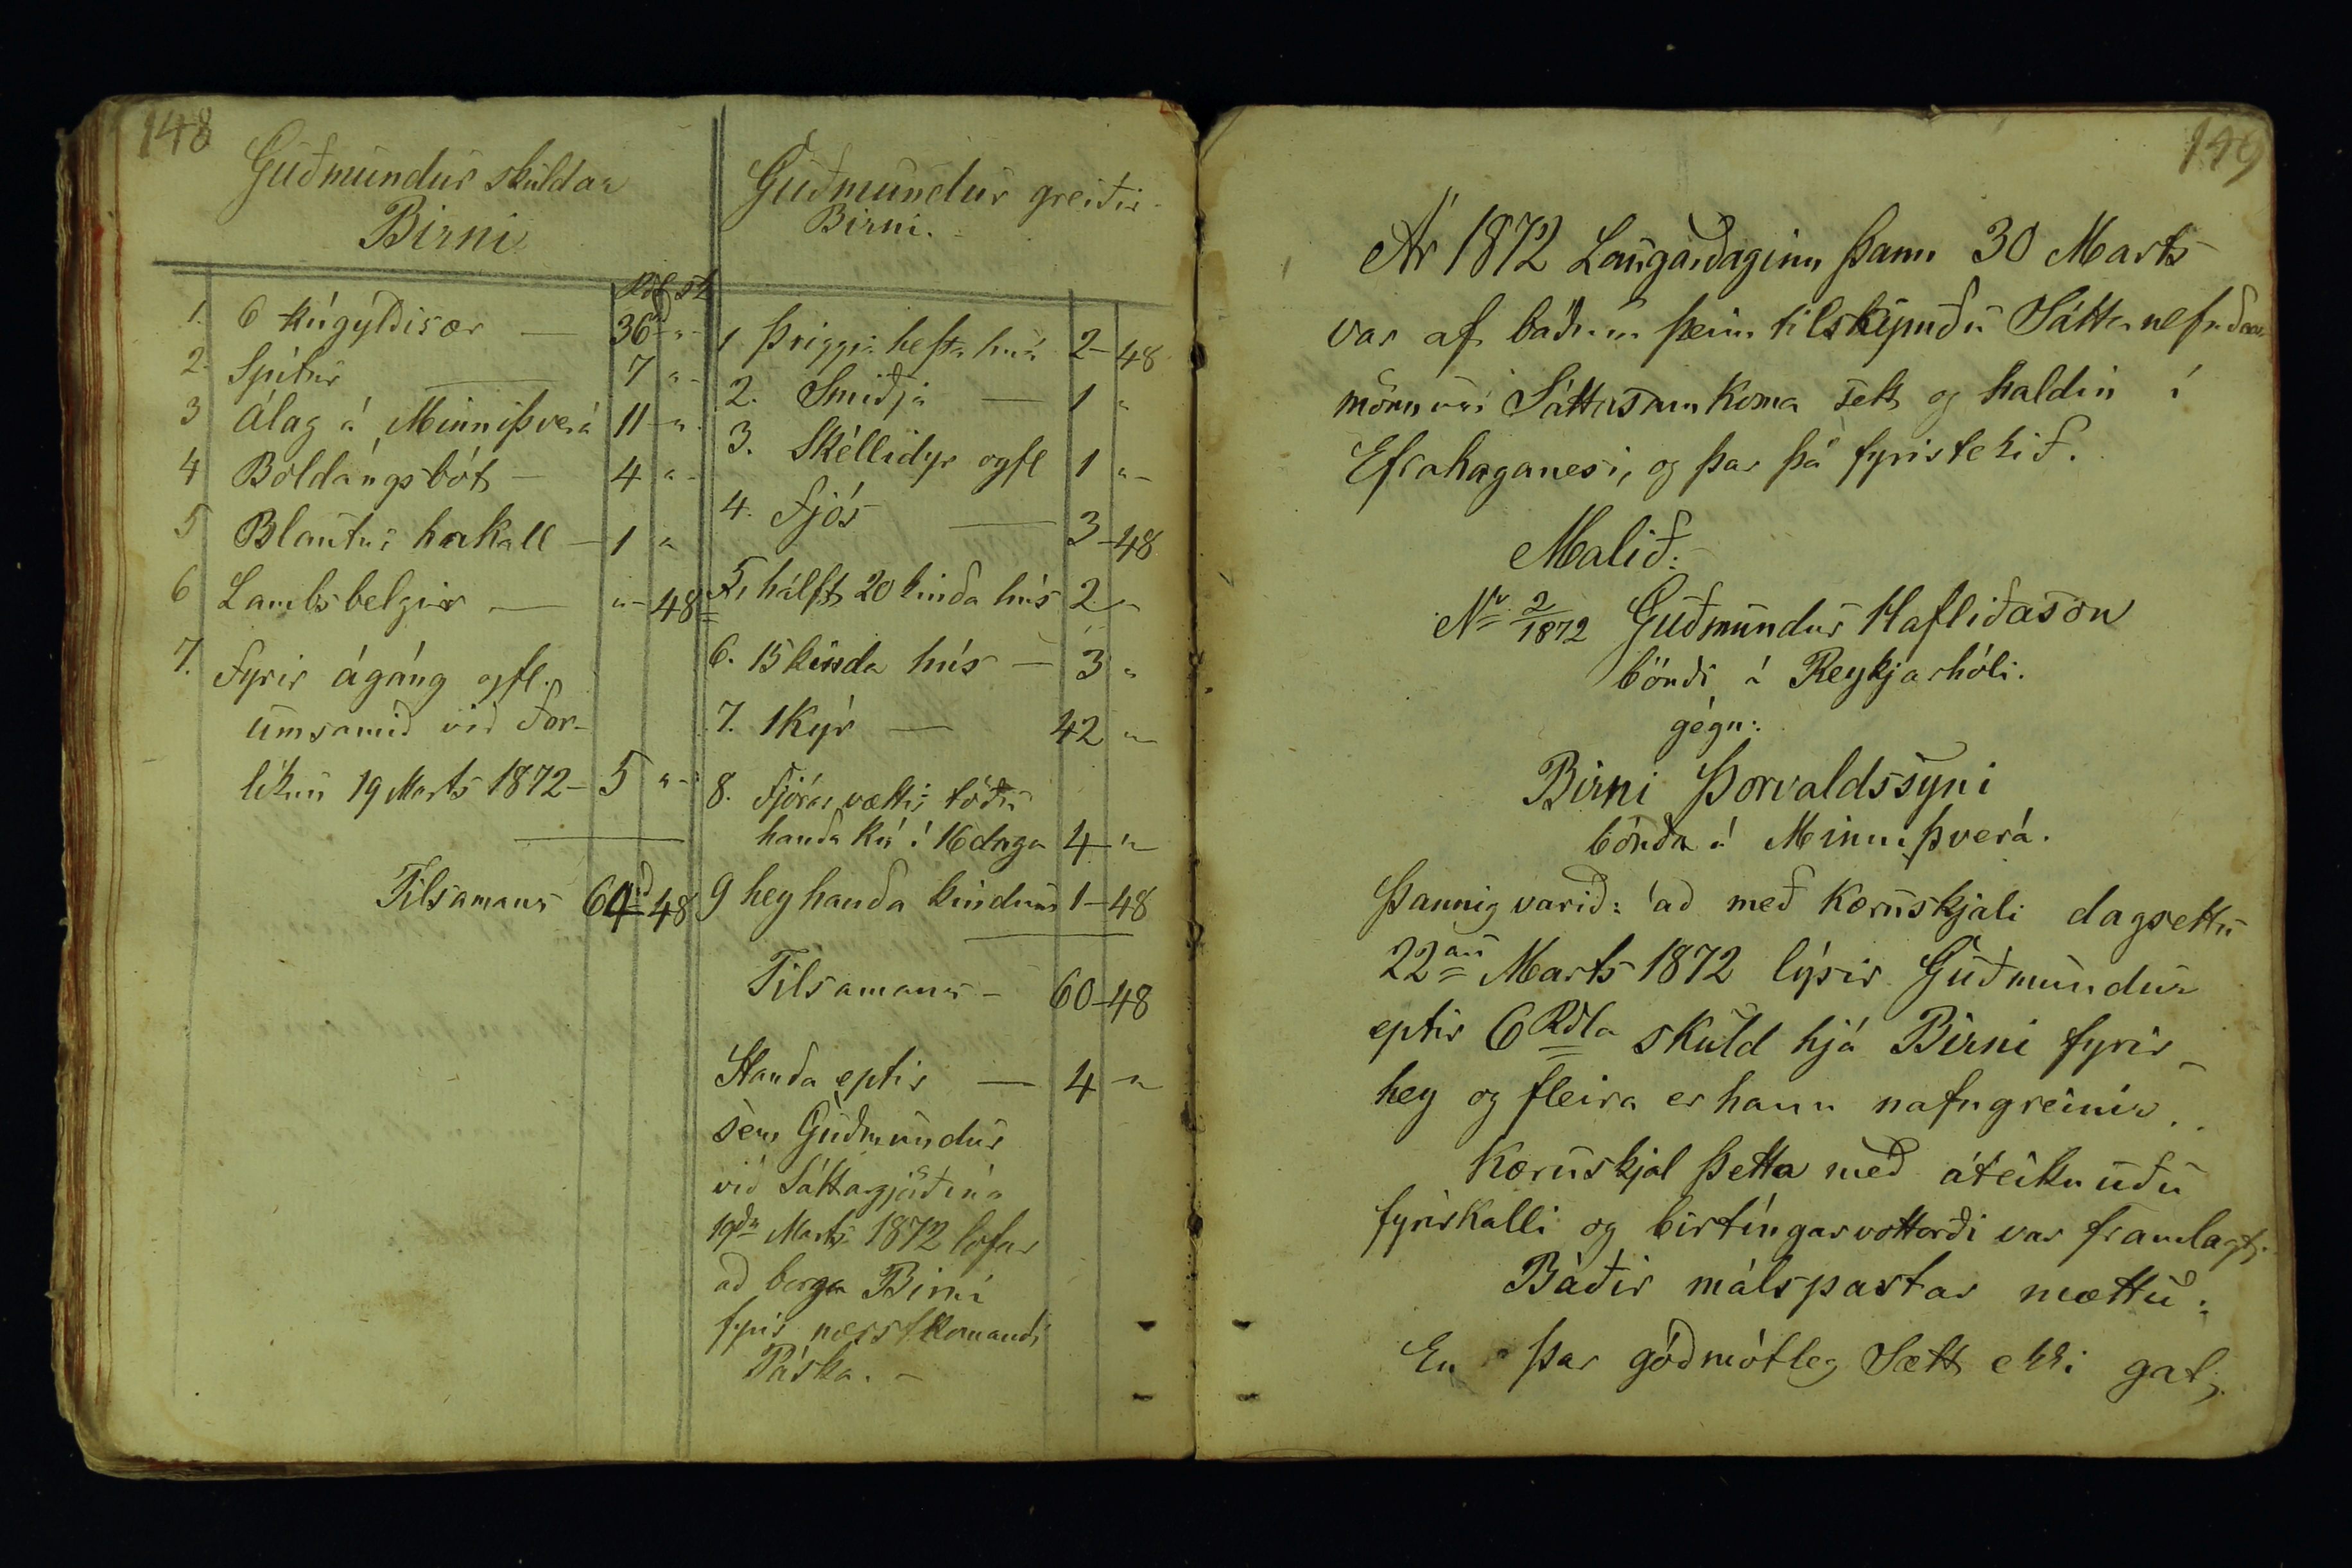 148
Guðmundur skuldar
Birni
Rdl sk
1. 6 kúgýldisær — 36 "-
2. Spítur — 7 "-
3 Álag á Minniþverá 11 -"-
4 Boldángsbót — 4 "-
5 Blautur hákall — 1 "
6 Lambsbelgir — "- 48
7. Fyrir ágáng ogfl.
umsamið við For-
líkun 19 Marts 1872 - 5 "-
Tilsamans 64 48
Guðmundur greiðir
Birni.
1 Þriggja hesta hús 2-48
2. Smiðja — 1 "
3. Skéllidyr ogfl 1 "-
4. Fjós — 3-48
5. hálft 20 kinda hús 2 "
6. 15 kinda hús — 3 "
7. 1 Kýr — 42 "
8. Fjórar vættir töðu
handa kú í 16 daga 4 - "
9 hey handa kindum 1-48
Tilsamans - 60-48
Standa eptir — 4 - "
sem Guðmundur
við Sáttagjörðina
19da Marts 1872 lofar
að borga Birni
fyrir næstkomandi
Páska. -
149
Ár 1872 Laugardaginn þann 30 Marts
var af báðum þeim tilskipuðu Sáttanefndar
mönnum Sáttasamkoma sett og haldin í
Efrahaganesi, og þar þá fyristekið.
Malið:
Nr 2/1872 Guðmundur Hafliðason
bóndi á Reykjarhóli.
gégn:
Birni Þorvaldssyni
bónda á Minniþverá.
Þannig varið: að með Kæruskjali dagsettu
22an Marts 1872 lýsir Guðmundur
eptir 6 Rdla skuld hjá Birni fyrir
hey og fleira er hann nafngreinir.
Kæruskjal þetta með áteiknuðu
fyrirkalli og birtíngarvottorði var framlagt.
Báðir málspartar mættu;
En þar góðmótleg Sætt ekki gat